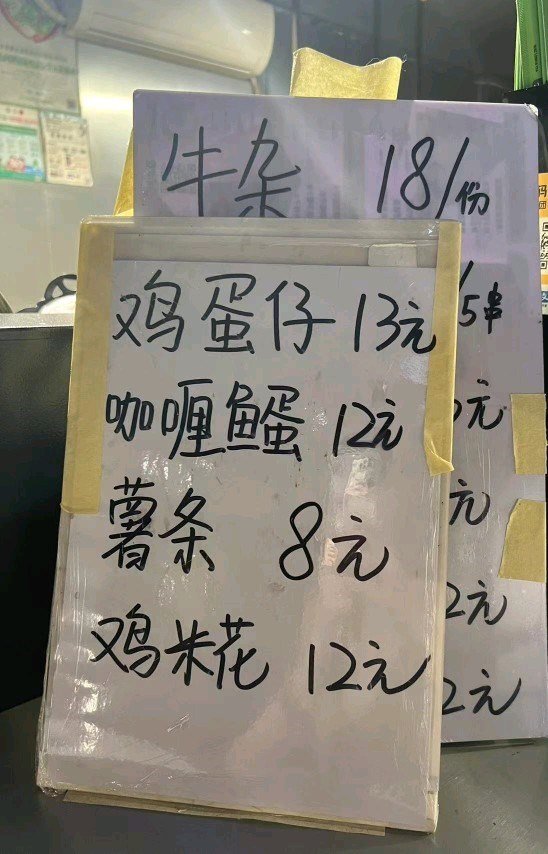 牛杂 18/份
鸡蛋仔 13元
/5串
咖喱鱼蛋 12元
元
薯条 8元
元
2元
鸡米花 12元
2元